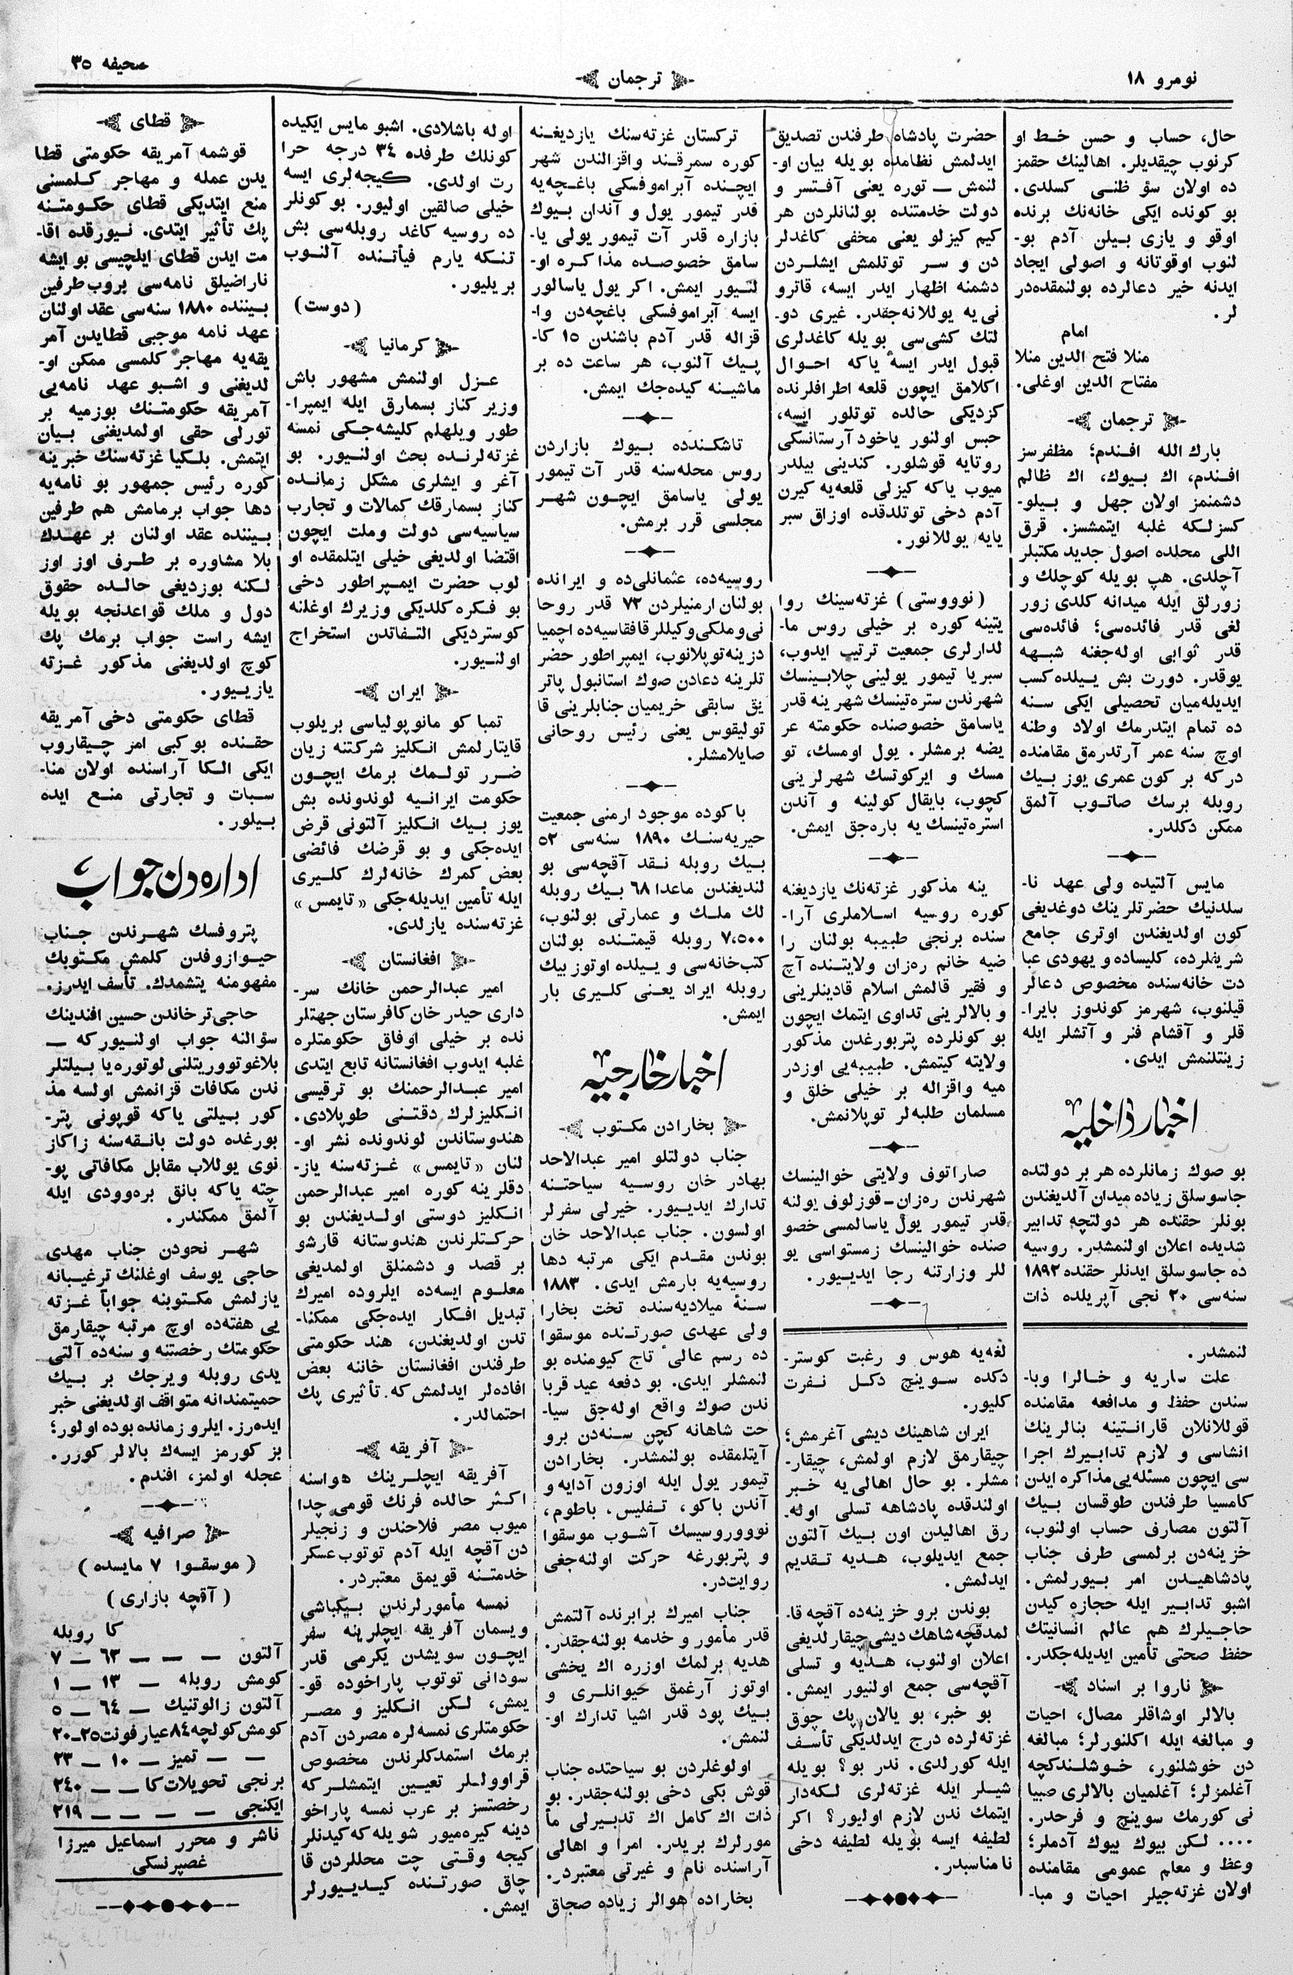 نومرو ۱۸
ترجمان
صحیفه ۳۵
حال، حساب و حسن خط او
کرنوب چیقدیلر. اهالینك حقمز
ده اولان سؤ ظنی کسلدی.
بو کونده ایکی خانه‌نك برنده
اوقو و یازی بیلن آدم بو-
لنوب اوقوتانه و اصولی ایجاد
ایدنه خیر دعالرده بولنمقده‌در
لر.
امام
منلا فتح الدین منلا
مفتاح الدین اوغلی.
ترجمان
بارك الله افندم؛ مظفرسز
افندم، اك بیوك، اك ظالم
دشمنمز اولان جهل و بیلو-
کسزلکه غلبه ایتمشسز. قرق
اللی محلده اصول جدید مکتبلر
آچلدی. هپ بویله کوچلك و
زورلق ایله میدانه کلدی زور
لغی قدر فائده‌سی؛ فائده‌سی
قدر ثوابی اوله‌جغنه شبهه
یوقدر. دورت بش ییلده کسب
ایدیله‌میان تحصیلی ایکی سنه
ده تمام ایتدرمك اولاد وطنه
اوچ سنه عمر آرتدرمق مقامنده
درکه بر کون عمری یوز بیك
روبله برسك صاتوب آلمق
ممکن دکلدر.
مایس آلتیده ولی عهد نا-
سلدنیك حضرتلرینك دوغدیغی
کون اولدیغندن اوتری جامع
شریفلرده، کلیساده و یهودی عبا
دت خانه‌سنده مخصوص دعالر
قیلنوب، شهرمز کوندوز بایرا-
قلر و آقشام فنر و آتشلر ایله
زینتلنمش ایدی.
اخبار داخلیه
بو صوك زمانلرده هر بر دولتده
جاسوسلق زیاده میدان آلدیغندن
بونلر حقنده هر دولتچه تدابیر
شدیده اعلان اولنمشدر. روسیه
ده جاسوسلق ایدنلر حقنده ۱۸۹۲
سنه‌سی ۲۰ نجی آپریلده ذات
حضرت پادشاه طرفندن تصدیق
ایدلمش نظامده بویله بیان او-
لنمش — توره یعنی آفتسر و
دولت خدمتنده بولنانلردن هر
کیم کیزلو یعنی مخفی کاغدلر
دن و سر توتلمش ایشلردن
دشمنه اظهار ایدر ایسه، قاترو
نی‌یه یوللانه‌جقدر. غیری دو-
لتك کشی‌سی بویله کاغدلری
قبول ایدر ایسه یاکه احوال
اکلامق ایچون قلعه اطرافلرنده
کزدیکی حالده توتلور ایسه،
حبس اولنور یاخود آرستانسکی
روتایه قوشلور. کندینی بیلدر
میوب یاکه کیزلی قلعه‌یه کیرن
آدم دخی توتلدقده اوزاق سبر
یایه یوللانور.
(نووستی) غزته‌سینك روا
یتینه کوره بر خیلی روس ما-
لدارلری جمعیت ترتیب ایدوب،
سبریا تیمور یولینی چلابینسك
شهرندن ستره‌تینسك شهرینه قدر
یاسامق خصوصنده حکومته عر
یضه برمشلر. یول اومسك، تو
مسك و ایرکوتسك شهرلرینی
کچوب، بایقال کولینه و آندن
استره‌تینسك یه باره‌جق ایمش.
ینه مذکور غزته‌نك یازدیغنه
کوره روسیه اسلاملری آرا-
سنده برنجی طبیبه بولنان را
ضیه خانم ره‌زان ولایتنده آچ
و فقیر قالمش اسلام قادینلرینی
و بالالرینی تداوی ایتمك ایچون
بو کونلرده پتربورغدن مذکور
ولایته کیتمش. طبیبه‌یی اوزدر
میه واقزاله بر خیلی خلق و
مسلمان طلبه‌لر توپلانمش.
صاراتوف ولایتی خوالینسك
شهرندن ره‌زان-قوزلوف یولنه
قدر تیمور یول یاسالمسی خصو
صنده خوالینسك زمستواسی یو
للر وزارتنه رجا ایدییور.
ترکستان غزته‌سنك یازدیغنه
کوره سمرقند واقزالندن شهر
ایچنده آبراموفسکی باغچه‌یه
قدر تیمور یول و آندان بیوك
بازاره قدر آت تیمور یولی یا-
سامق خصوصده مذاکره او-
لنیور ایمش. اکر یول یاسالور
ایسه آبراموفسکی باغچه‌دن وا-
قزاله قدر آدم باشندن ۱۵ کا-
پیك آلنوب، هر ساعت ده بر
ماشینه کیده‌جك ایمش.
تاشکندده بیوك بازاردن
روس محله‌سنه قدر آت تیمور
یولی یاسامق ایچون شهر
مجلسی قرر برمش.
روسیه‌ده، عثمانلی‌ده و ایرانده
بولنان ارمنیلردن ۷۳ قدر روحا
نی و ملکی وکیللر قافقاسیه‌ده اچمیا
دزینه توپلانوب، ایمپراطور حضر
تلرینه دعادن صوك استانبول پاتر
یق سابقی خریمیان جنابلرینی قا
تولیقوس یعنی رئیس روحانی
صایلامشلر.
باکوده موجود ارمنی جمعیت
خیریه‌سنك ۱۸۹۰ سنه‌سی ۵۲
بیك روبله نقد آقچه‌سی بو
لندیغندن ماعدا ۶۸ بیك روبله
لك ملك و عمارتی بولنوب،
۷،۵۰۰ روبله قیمتنده بولنان
کتب‌خانه‌سی و ییلده اوتوز بیك
روبله ایراد یعنی کلیری بار
ایمش.
اخبار خارجیه
بخارادن مکتوب
جناب دولتلو امیر عبدالاحد
بهادر خان روسیه سیاحتنه
تدارك ایدییور. خیرلی سفرلر
اولسون. جناب عبدالاحد خان
بوندن مقدم ایکی مرتبه دها
روسیه‌یه بارمش ایدی. ۱۸۸۳
سنهٔ میلادیه‌سنده تخت بخارا
ولی عهدی صورتنده موسقوا
ده رسم عالی تاج کیومنده بو
لنمشلر ایدی. بو دفعه عید قربا
ندن صوك واقع اوله‌جق سیا-
حت شاهانه کچن سنه‌دن برو
آیتلمقده بولنمشدر. بخارادن
تیمور یول ایله اوزون آدایه و
آندن باکو، تفلیس، باطوم،
نوووروسیسك آشوب موسقوا
و پتربورغه حرکت اولنه‌جغی
روایت‌در.
جناب امیرك برابرنده آلتمش
قدر مأمور و خدمه بولنه‌جقدر.
هدیه برلمك اوزره اك یخشی
اوتوز آرغمق حیوانلری و
بیك پود قدر اشیا تدارك او-
لنمش.
اولوغلردن بو سیاحتده جناب
قوش بکی دخی بولنه‌جقدر. بو
ذات اك کامل اك تدبیرلی مأ
مورلرك بریدر. امرا و اهالی
آراسنده نام و غیرتی معتبردر.
بخاراده هوالر زیاده صجاق
اوله باشلادی. اشبو مایس ایکیده
کونلك طرفده ۳۴ درجه حرا
رت اولدی. کیجه‌لری ایسه
خیلی صالقین اولیور. بو کونلر
ده روسیه کاغد روبله‌سی بش
تنکه یارم فیأتنده آلنوب
بریلیور.
(دوست)
کرمانیا
عزل اولنمش مشهور باش
وزیر کناز بسمارق ایله ایمپرا-
طور ویلهلم کلیشه‌جکی نمسه
غزته‌لرنده بحث اولنیور. بو
آغر و ایشلری مشکل زمانده
کناز بسمارقك کمالات و تجارب
سیاسیه‌سی دولت وملت ایچون
اقتضا اولدیغی خیلی ایتلمقده او
لوب حضرت ایمپراطور دخی
بو فکره کلدیکی وزیرك اوغلنه
کوستردیکی التفاتدن استخراج
اولنیور.
ایران
تمباکو مانوپولیاسی بریلوب
قایتارلمش انکلیز شرکتنه زیان
ضرر تولمك برمك ایچون
حکومت ایرانیه لوندونده بش
یوز بیك انکلیز آلتونی قرض
ایده‌جکی و بو قرضك فائضی
بعض کمرك خانه‌لرك کلیری
ایله تأمین ایدیله‌جکی «تایمس»
غزته‌سنده یازلدی.
افغانستان
امیر عبدالرحمن خانك سر-
داری حیدر خان کافرستان جهتلر
نده بر خیلی اوفاق حکومتلره
غلبه ایدوب افغانستانه تابع ایتدی
امیر عبدالرحمنك بو ترقیسی
انکلیزلرك دقتنی طوپلادی.
هندوستاندن لوندونده نشر او-
لنان «تایمس» غزته‌سنه یاز-
دقلرینه کوره امیر عبدالرحمن
انکلیز دوستی اولدیغندن بو
حرکتلرندن هندوستانه قارشو
بر قصد و دشمنلق اولمدیغی
معلوم ایسه‌ده ایلروده امیرك
تبدیل افکار ایده‌جکی ممکنا-
تدن اولدیغندن، هند حکومتی
طرفندن افغانستان خاننه بعض
افاده‌لر ایدلمش که تأثیری پك
احتمالدر.
آفریقه
آفریقه ایچلرینك هواسنه
اکثر حالده فرنك قومی چدا
میوب مصر فلاحندن و زنجیلر
دن آقچه ایله آدم توتوب عسکر
خدمتنه قویمق معتبردر.
نمسه مأمورلرندن بیکباشی
ویسمان آفریقه ایچلرینه سفر
ایچون سویشدن یکرمی قدر
سودانی توتوب پاراخوده قو-
یمش، لکن انکلیز و مصر
حکومتلری نمسه‌لره مصردن آدم
برمك استمدکلرندن مخصوص
قراووللر تعیین ایتمشلر که
رخصتسز بر عرب نمسه پاراخو
دینه کیره‌میور شویله که کیدنلر
کیجه وقتی چت محللردن قا
چاق صورتنده کیدییورلر
ایمش.
قطای
قوشمه آمریقه حکومتی قطا
یدن عمله و مهاجر کلمسنی
منع ایتدیکی قطای حکومتنه
پك تأثیر ایتدی. نیورقده اقا-
مت ایدن قطای ایلچیسی بو ایشه
ناراضیلق نامه‌سی بروب طرفین
بیننده ۱۸۸۰ سنه‌سی عقد اولنان
عهد نامه موجبی قطایدن آمر
یقه‌یه مهاجر کلمسی ممکن او-
لدیغنی و اشبو عهد نامه‌یی
آمریقه حکومتنك بوزمیه بر
تورلی حقی اولمدیغنی بیان
ایتمش. بلکیا غزته‌سنك خبرینه
کوره رئیس جمهور بو نامه‌یه
دها جواب برمامش هم طرفین
بیننده عقد اولنان بر عهدك
بلا مشاوره بر طرف اوز اوز
لکنه بوزدیغی حالده حقوق
دول و ملك قواعدنجه بویله
ایشه راست جواب برمك پك
کوچ اولدیغنی مذکور غزته
یازییور.
قطای حکومتی دخی آمریقه
حقنده بوکبی امر چیقاروب
ایکی الکا آراسنده اولان منا-
سبات و تجارتی منع ایده
بیلور.
اداره‌دن جواب
پتروفسك شهرندن جناب
حیوازوفدن کلمش مکتوبك
مفهومنه یتشمدك. تأسف ایدرز.
حاجی‌ترخاندن حسین افندینك
سؤالنه جواب اولنیور که —
بلاغوتووریتلنی لوتوره‌یا بیلتلر
ندن مکافات قزانمش اولسه مذ
کور بیلتی یاکه قوپونی پتر-
بورغده دولت بانقه‌سنه زاکاز
نوی یوللاب مقابل مکافاتی پو-
چته یاکه بانق بره‌وودی ایله
آلمق ممکندر.
شهر نحودن جناب مهدی
حاجی یوسف اوغلنك ترغیبانه
یازلمش مکتوبنه جواباً غزته
یی هفته‌ده اوچ مرتبه چیقارمق
حکومتك رخصتنه و سنه‌ده آلتی
یدی روبله ویرجك بر بیك
حمیتمندانه متوقف اولدیغنی خبر
ایده‌رز. ایلرو زمانده بوده اولور؛
بز کورمز ایسه‌ك بالالر کورر.
عجله اولمز، افندم.
صرافیه
(موسقوا ۷ مایسده)
(آقچه بازاری)
کا روبله
آلتون — — — ۶۳ — ۷
کومش روبله — ۱۳ — ۱
آلتون زالوتنیك — ۶۴ — ۵
کومش کولچه ۸۴ عیار فونت ۲۵-۲۰
— — تمیز — ۱۰ — ۲۳
برنجی تحویلات کا — — ۲۴۰
ایکنجی — — — ۲۱۹
ناشر و محرر اسماعیل میرزا
غصپرنسکی
لنمشدر.
علت ساریه و خالرا وبا-
سندن حفظ و مدافعه مقامنده
قوللانلان قارانتینه بنالرینك
انشاسی و لازم تدابیرك اجرا
سی ایچون مسئله‌یی مذاکره ایدن
کامسیا طرفندن طوقسان بیك
آلتون مصارف حساب اولنوب،
خزینه‌دن برلمسی طرف جناب
پادشاهیدن امر بیورلمش.
اشبو تدابیر ایله حجازه کیدن
حاجیلرك هم عالم انسانیتك
حفظ صحتی تأمین ایدیله‌جکدر.
ناروا بر اسناد
بالالر اوشاقلر مصال، احیات
و مبالغه ایله اکلنورلر؛ مبالغه
دن خوشلنور، خوشلندکچه
آغلمزلر؛ آغلمیان بالالری صبیا
نی کورمك سوینچ و فرحدر.
.... لکن بیوك بیوك آدملر؛
وعظ و معلم عمومی مقامنده
اولان غزته‌جیلر احیات و مبا-
لغه‌یه هوس و رغبت کوستر-
دکده سوینچ دکل نفرت
کلیور.
ایران شاهینك دیشی آغرمش؛
چیقارمق لازم اولمش، چیقار-
مشلر. بو حال اهالی‌یه خبر
اولندقده پادشاهه تسلی اوله-
رق اهالیدن اون بیك آلتون
جمع ایدیلوب، هدیه تقدیم
ایدلمش.
بوندن برو خزینه‌ده آقچه قا-
لمدقچه شاهك دیشی چیقارلدیغی
اعلان اولنوب، هدیه و تسلی
آقچه‌سی جمع اولنیور ایمش.
بو خبر، بو یالان پك چوق
غزته‌لرده درج ایدلدیکی تأسف
ایله کورلدی. ندر بو؟ بویله
شیلر ایله غزته‌لری لکه‌دار
ایتمك ندن لازم اولیور؟ اکر
لطیفه ایسه بویله لطیفه دخی
نامناسبدر.